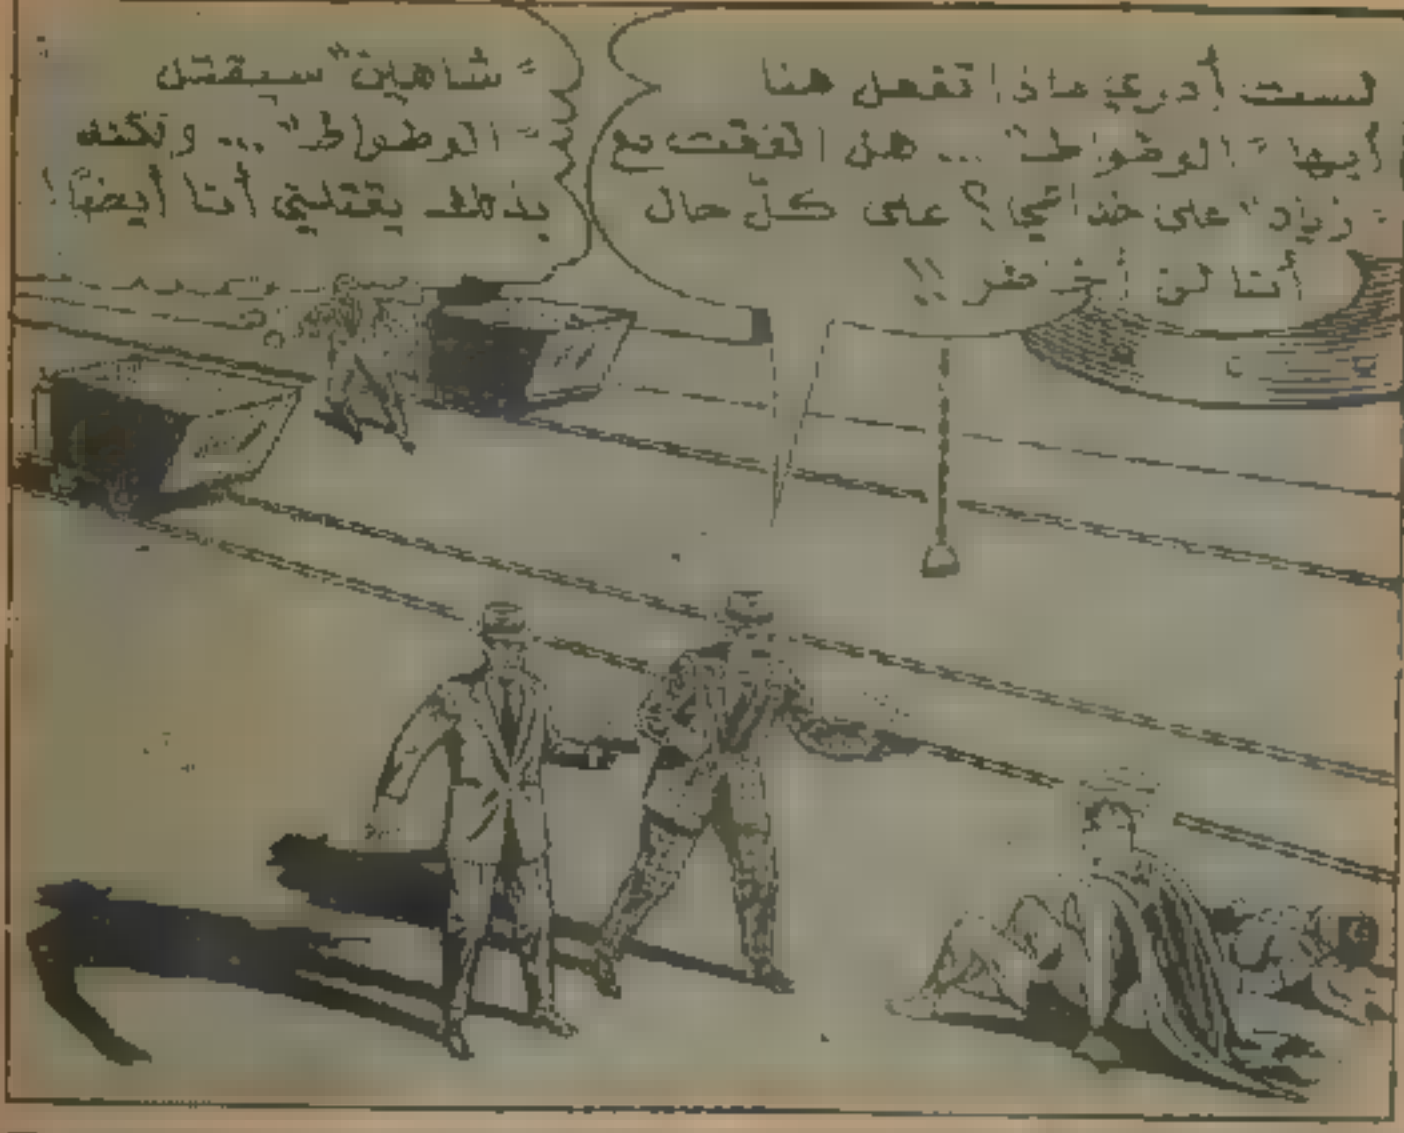 لست أدري ماذا تفعل هنا
أيها "الوطواط" ... هل اتفقت مع
"زياد" على خداعي؟ على كلّ حال
أنا لن أخسر !!
"شاهين" سيقتل
"الوطواط" ... ولكنه
بذلك يقتلني أنا أيضًا !